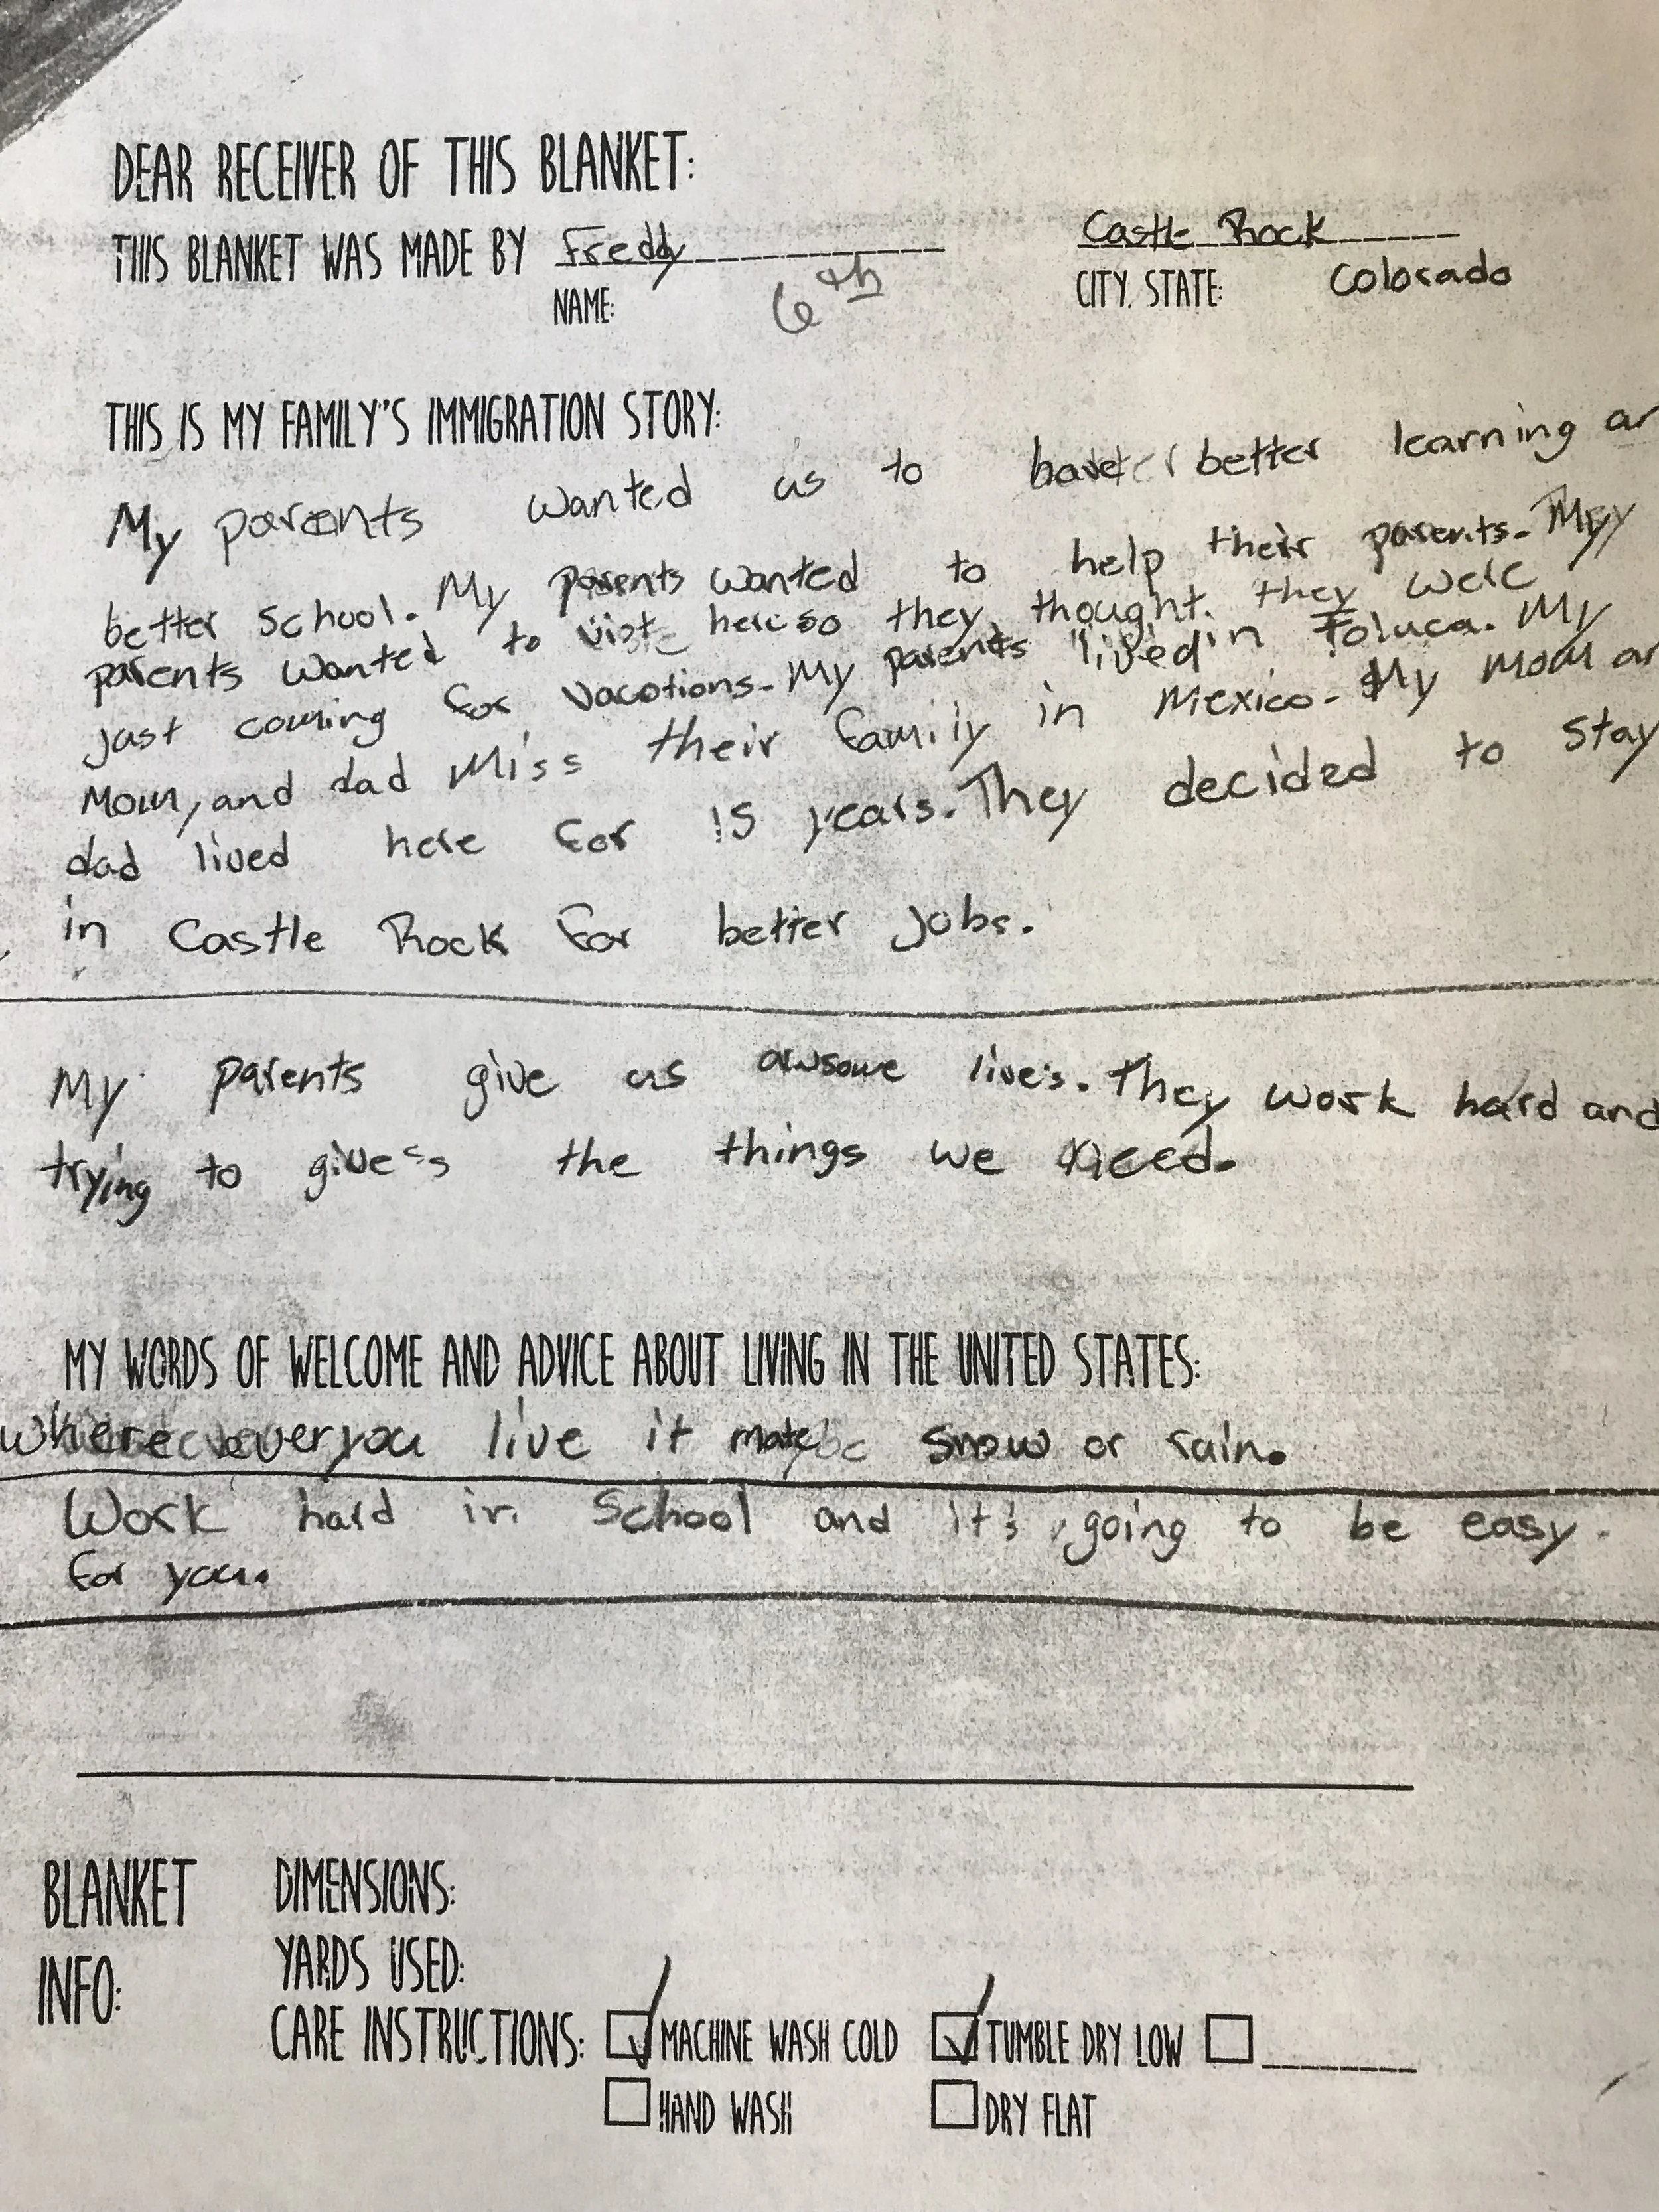 DEAR RECEIVER OF THIS BLANKET:
THIS BLANKET WAS MADE BY Freddy Castle Rock
NAME: 6th CITY, STATE: Colorado
THIS IS MY FAMILY'S IMMIGRATION STORY:
My parents wanted us to have better learning an
better school. My parents wanted to help their parents. My
parents wanted to viste here so they thought they were
just coming for vacations. My parents lived in Toluca. My
Mom, and dad Miss their family in Mexico. My mom an
dad lived here for 15 years. They decided to stay
in Castle Rock for better jobs.
My parents give us awsome live's. They work hard and
trying to give the things we need.
MY WORDS OF WELCOME AND ADVICE ABOUT LIVING IN THE UNITED STATES:
Where ever you live it maybe snow or rain.
Work hard in School and it's going to be easy
for you.
BLANKET DIMENSIONS:
INFO: YARDS USED:
CARE INSTRUCTIONS: MACHINE WASH COLD TUMBLE DRY LOW
HAND WASH DRY FLAT